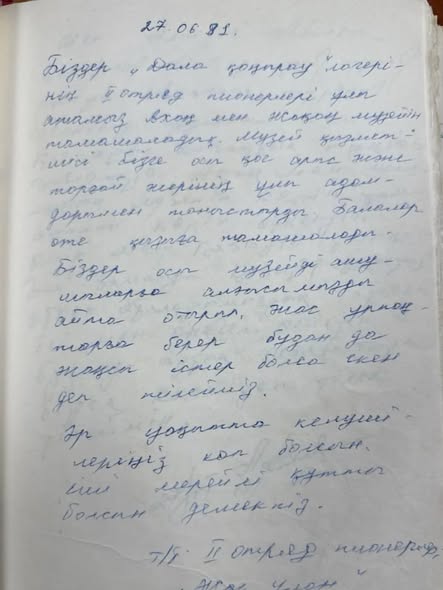 27.06.91.
Біздер „Дала қоңырау" лагері-
нің II отряд пионерлері ұлы
атамыз Ахаң мен Жақаң музейін
тамашаладық. Музей қызмет-
шісі бізге осы қос арыс және
торғай жерінің ұлы адам-
дарымен таныстырды. Балалар
өте қызыға тамашалады.
Біздер осы музейді ашу-
шыларға алғысымызды
айта отырып, жас ұрпақ-
тарға берер бұдан да
жақсы істер болса екен
деп тілейміз.
Әр уақытта келуші-
леріңіз көп болсын.
іші мерейлі құтты
болсын демекпіз.
т/ж II отряд пионерлер
„Жас ұлан"